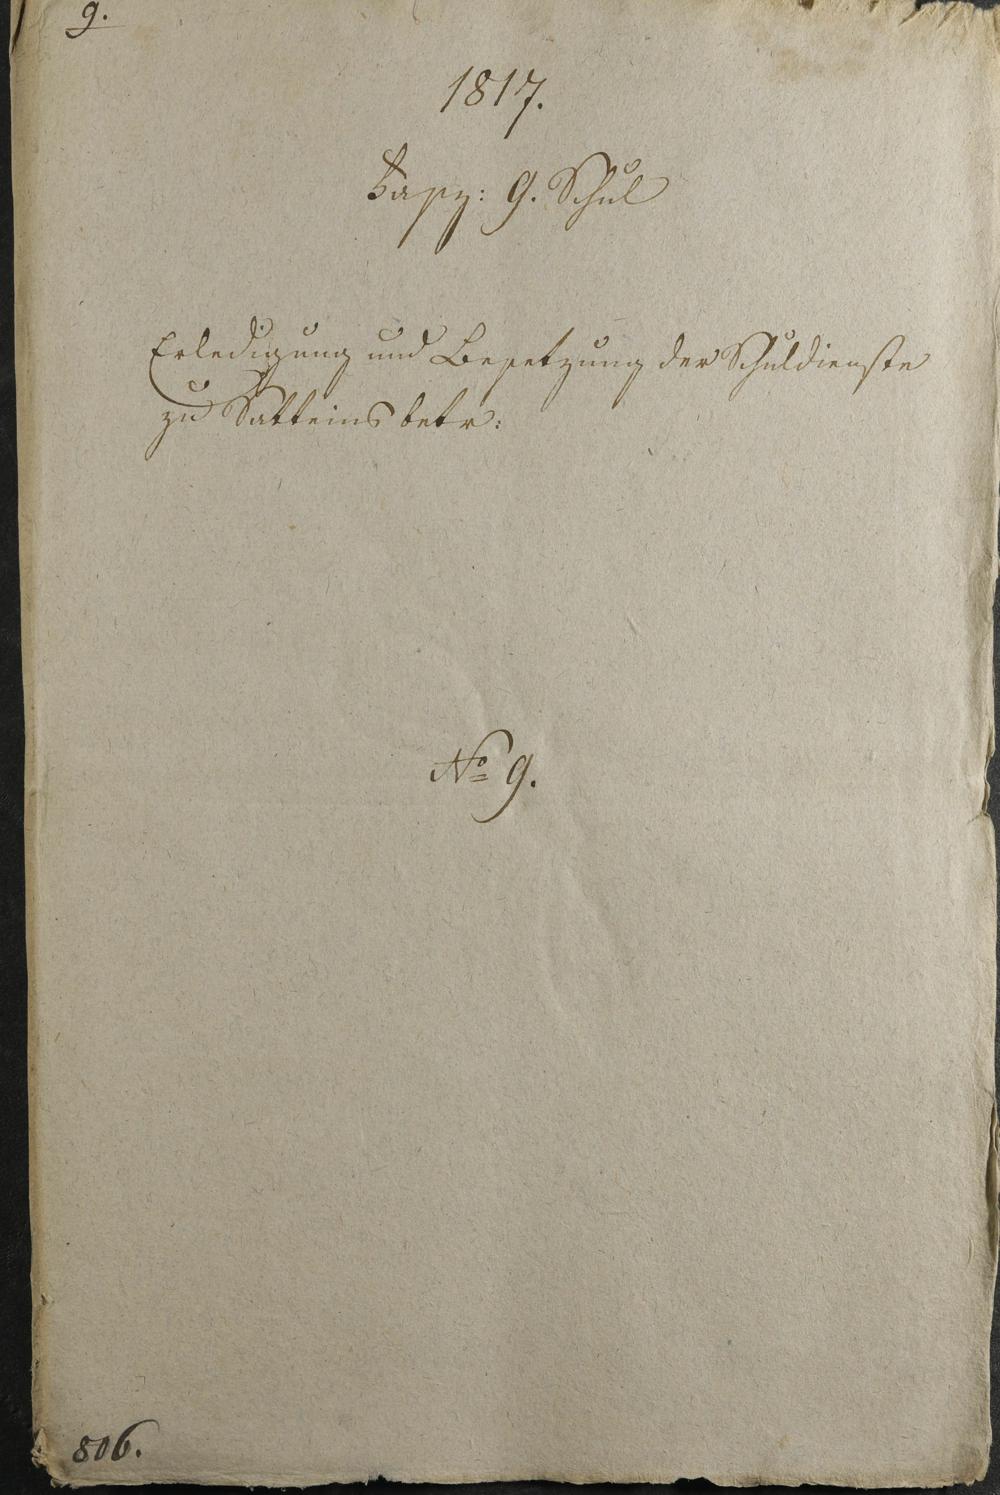 9.
1817.
Fasz: 9. Schul
Erledigung und Besetzung der Schuldienste
zu Satteins betr:
No 9.
806.